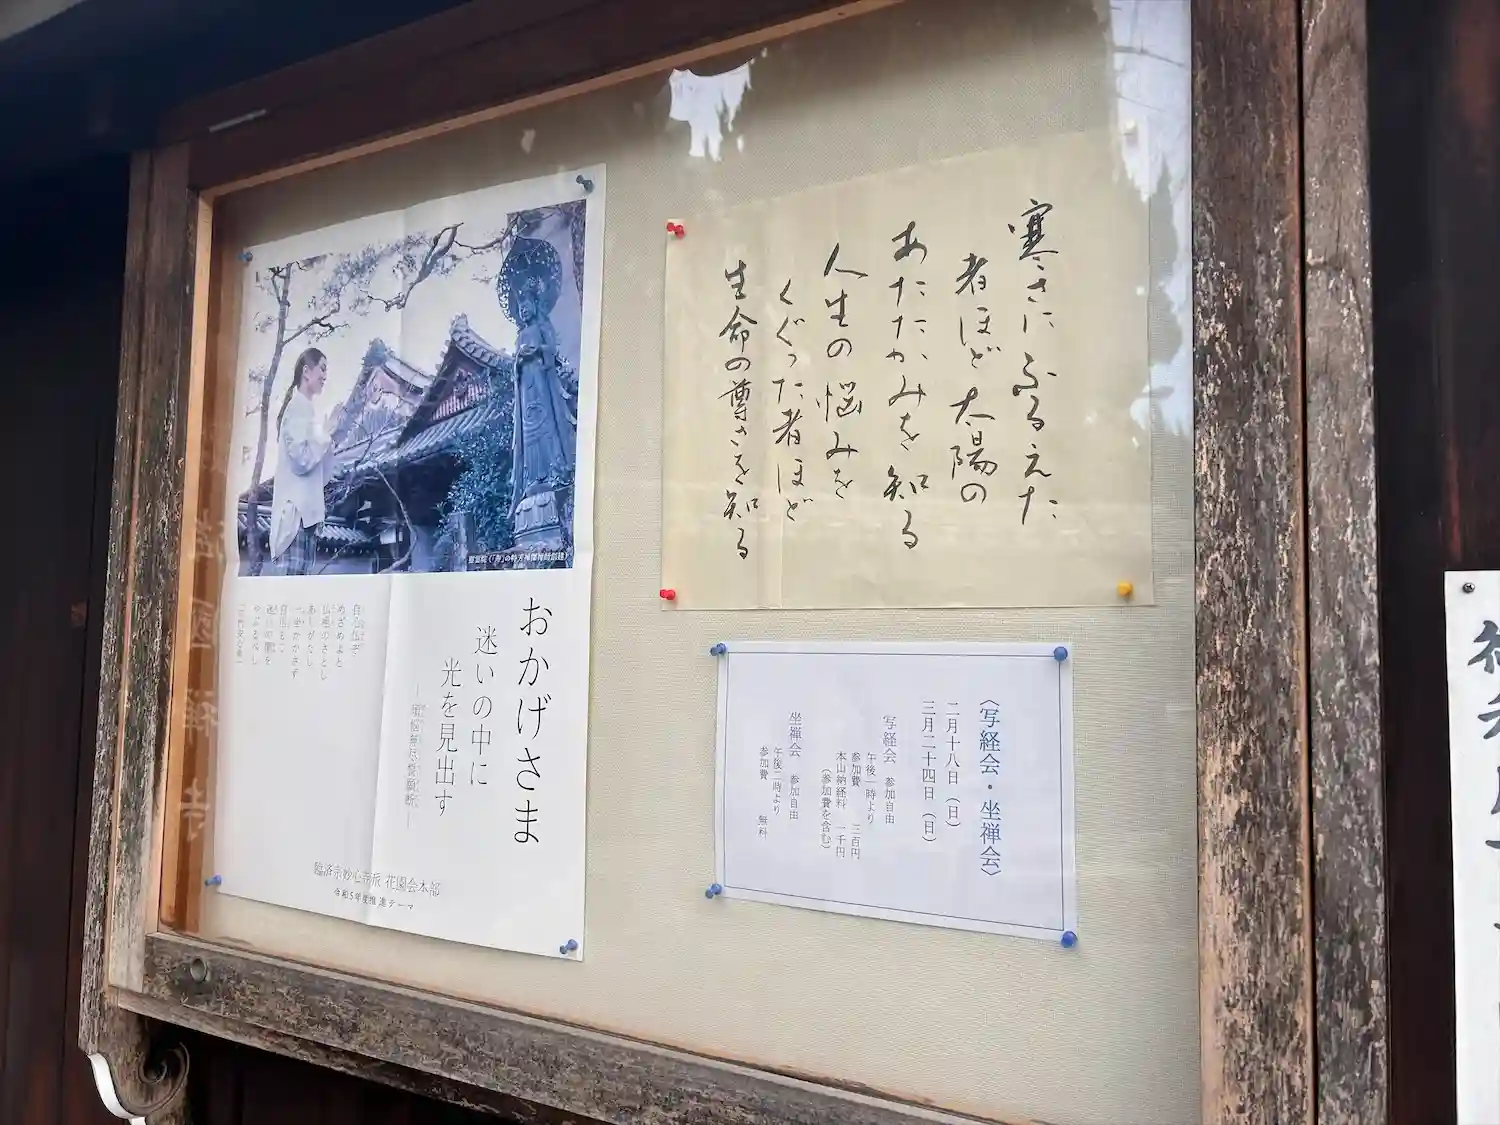 寒さにふるえた
者ほど太陽の
あたたかみを知る
人生の悩みを
くぐった者ほど
生命の尊さを知る
〈写経会・坐禅会〉
二月十八日（日）
三月二十四日（日）
写経会 参加自由
午後一時より
参加費 三百円
本山納経料 一千円
（参加費を含む）
坐禅会 参加自由
午後二時より
参加費 無料
おかげさま
迷いの中に
光を見出す
臨済宗妙心寺派 花園会本部
令和5年度推進テーマ